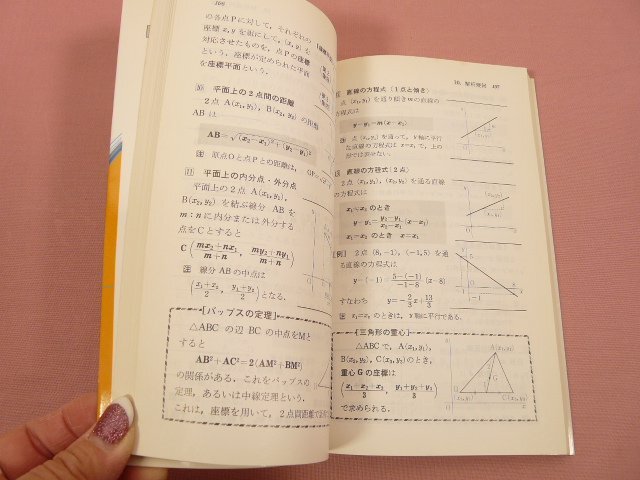 166
の各点Pに対して，それぞれの
座標 x, y を組にして，(x, y) を
対応させたものを，点Pの座標
という．座標が定められた平面
を座標平面という．
10 平面上の2点間の距離
2点 A(x₁, y₁)，B(x₂, y₂) の距離
AB は
AB=√(x₂−x₁)²+(y₂−y₁)²
注 原点Oと点Pとの距離は，
11 平面上の内分点・外分点
平面上の2点 A(x₁, y₁),
B(x₂, y₂) を結ぶ線分 AB を
m：n に内分または外分する
点をCとすると
C(mx₂+nx₁/m+n, my₂+ny₁/m+n)
注 線分 AB の中点は
(x₁+x₂/2, y₁+y₂/2)となる．
［パップスの定理］
△ABC の辺 BC の中点をMと
すると
AB²+AC²=2(AM²+BM²)
の関係がある．これをパップスの
定理，あるいは中線定理という．
これは，座標を用いて，2点間距離で
10. 解析幾何 167
直線の方程式（1点と傾き）
点 (x₁, y₁) を通り傾き m の直線の
方程式は
y−y₁=m(x−x₁)
注 点 (x₁, y₁) を通って，y 軸に平行
な直線の方程式は x=x₁ で，上の
形では表せない．
直線の方程式（2点）
2点 (x₁, y₁), (x₂, y₂) を通る直線
の方程式は
x₁≠x₂ のとき
y−y₁=y₂−y₁/x₂−x₁(x−x₁)
x₁=x₂ のとき x=x₁
［例］ 2点 (8, −1), (−1, 5) を通
る直線の方程式は
y−(−1)=5−(−1)/−1−8(x−8)
すなわち y=−2/3x+13/3
注 x₁=x₂ のときは，y 軸に平行である．
［三角形の重心］
△ABC で，A(x₁, y₁),
B(x₂, y₂), C(x₃, y₃) のとき，
重心 G の座標は
(x₁+x₂+x₃/3, y₁+y₂+y₃/3)
で求められる．